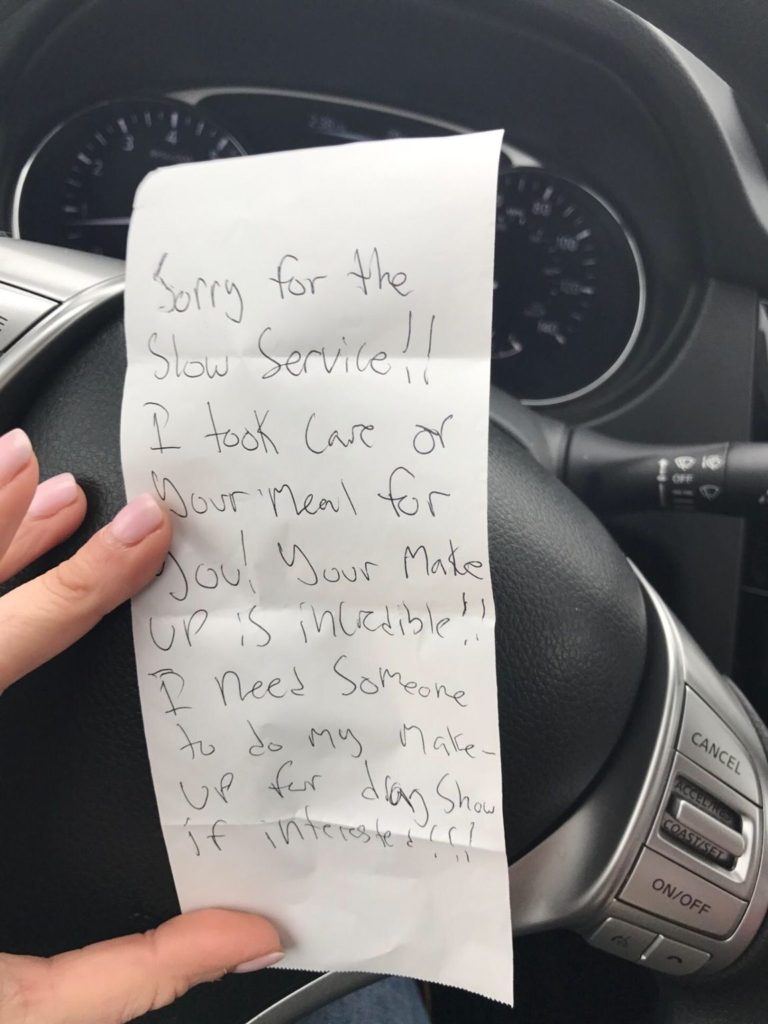 Sorry for the
Slow Service!!
I took care or
your meal for
you! Your Make
up is incredible!!
I need Someone
to do my Make-
up for drag Show
if interested!!!
CANCEL
ACCEL/RES
COAST/SET
ON/OFF
OFF
3
4
80
100